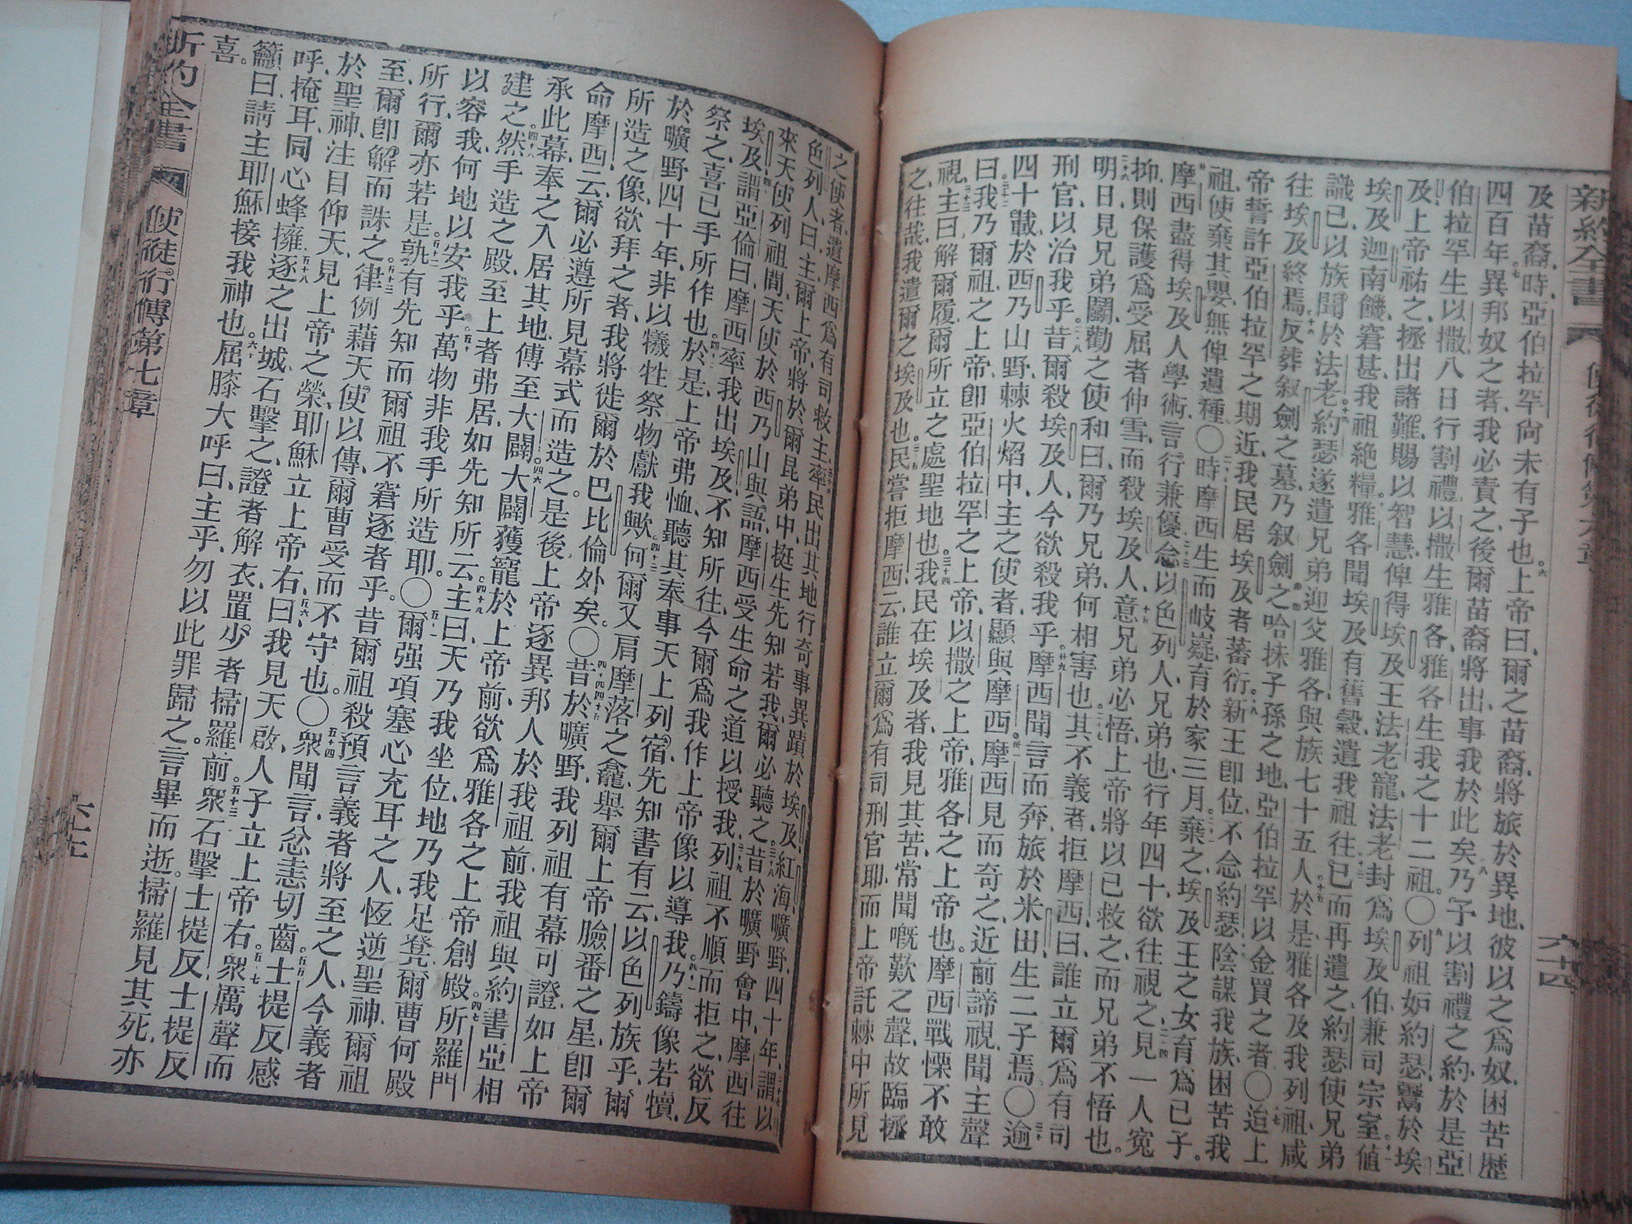 新約全書
六十四
及苗裔時亞伯拉罕尙未有子也上帝曰爾之苗裔將旅於異地彼以之爲奴困苦歷
四百年異邦奴之者我必責之後爾苗裔將出事我於此矣乃予以割禮之約於是亞
伯拉罕生以撒八日行割禮以撒生雅各雅各生我之十二祖〇列祖妬約瑟鬻於埃
及上帝祐之拯出諸難賜以智慧俾得埃及王法老寵法老封爲埃及伯兼司宗室値
埃及迦南饑窘甚我祖絶糧雅各聞埃及有舊穀遣我祖往已而再遣之約瑟使兄弟
識已以族聞於法老約瑟遂遣兄弟迎父雅各與族七十五人於是雅各及我列祖咸
往埃及終焉反葬叙劍之墓乃叙劍之哈抹子孫之地亞伯拉罕以金買之者〇迨上
帝誓許亞伯拉罕之期近我民居埃及者蕃衍新王卽位不念約瑟陰謀我族困苦我
祖使棄其嬰無俾遺種〇時摩西生而岐嶷育於家三月棄之埃及王之女育爲已子
摩西盡得埃及人學術言行兼優念以色列人兄弟也行年四十欲往視之見一人寃
抑則保護爲受屈者伸雪而殺埃及人意兄弟必悟上帝將以已救之而兄弟不悟也
明日見兄弟鬬勸之使和曰爾乃兄弟何相害也其不義者拒摩西曰誰立爾爲有司
刑官以治我乎昔爾殺埃及人今欲殺我乎摩西聞言而奔旅於米田生二子焉〇逾
四十載於西乃山野棘火焰中主之使者顯與摩西摩西見而奇之近前諦視聞主聲
曰我乃爾祖之上帝卽亞伯拉罕之上帝以撒之上帝雅各之上帝也摩西戰慄不敢
視主曰解爾履爾所立之處聖地也我民在埃及者我見其苦常聞嘅歎之聲故臨拯
之往哉我遣爾之埃及也民嘗拒摩西云誰立爾爲有司刑官耶而上帝託棘中所見
之使者遣摩西爲有司救主率民出其地行奇事異蹟於埃及紅海曠野四十年謂以
色列人曰主爾上帝將於爾昆弟中挺生先知若我爾必聽之昔於曠野會中摩西往
來天使列祖間天使於西乃山與語摩西受生命之道以授我列祖不順而拒之欲反
埃及謂亞倫曰摩西率我出埃及不知所往今爾爲我作上帝像以導我乃鑄像若犢
祭之喜已手所作也於是上帝弗恤聽其奉事天上列宿先知書有云以色列族乎爾
於曠野四十年非以犧牲祭物獻我歟何爾又肩摩落之龕舉爾上帝臉番之星卽爾
所造之像欲拜之者我將徙爾於巴比倫外矣〇昔於曠野我列祖有幕可證如上帝
命摩西云爾必遵所見幕式而造之是後上帝逐異邦人於我祖前我祖與約書亞相
承此幕奉之入居其地傳至大闢大闢獲寵於上帝前欲爲雅各之上帝創殿所羅門
建之然手造之殿至上者弗居如先知所云主曰天乃我坐位地乃我足凳爾曹何殿
以容我何地以安我乎萬物非我手所造耶〇爾强項塞心充耳之人恆逆聖神爾祖
所行爾亦若是孰有先知而爾祖不窘逐者乎昔爾祖殺預言義者將至之人今義者
至爾卽解而誅之律例藉天使以傳爾曹受而不守也〇衆聞言忿恚切齒士提反感
於聖神注目仰天見上帝之榮耶穌立上帝右曰我見天啟人子立上帝右衆厲聲而
呼掩耳同心蜂擁逐之出城石擊之證者解衣置少者掃羅前衆石擊士提反士提反
籲曰請主耶穌接我神也屈膝大呼曰主乎勿以此罪歸之言畢而逝掃羅見其死亦
喜
新約全書
使徒行傳第七章
六十五